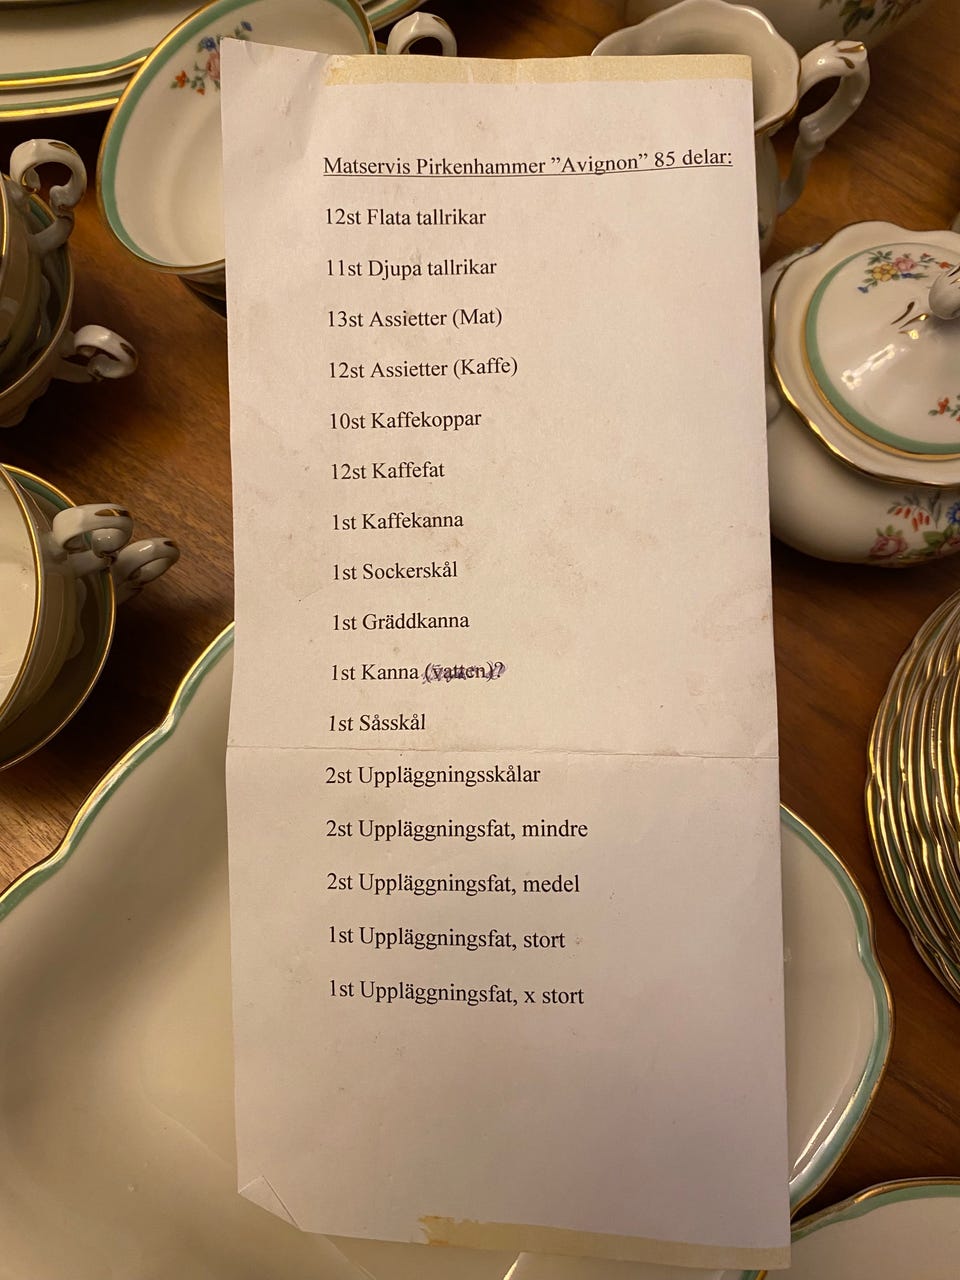 Matservis Pirkenhammer ”Avignon” 85 delar:
12st Flata tallrikar
11st Djupa tallrikar
13st Assietter (Mat)
12st Assietter (Kaffe)
10st Kaffekoppar
12st Kaffefat
1st Kaffekanna
1st Sockerskål
1st Gräddkanna
1st Kanna (vatten)?
1st Såsskål
2st Uppläggningsskålar
2st Uppläggningsfat, mindre
2st Uppläggningsfat, medel
1st Uppläggningsfat, stort
1st Uppläggningsfat, x stort